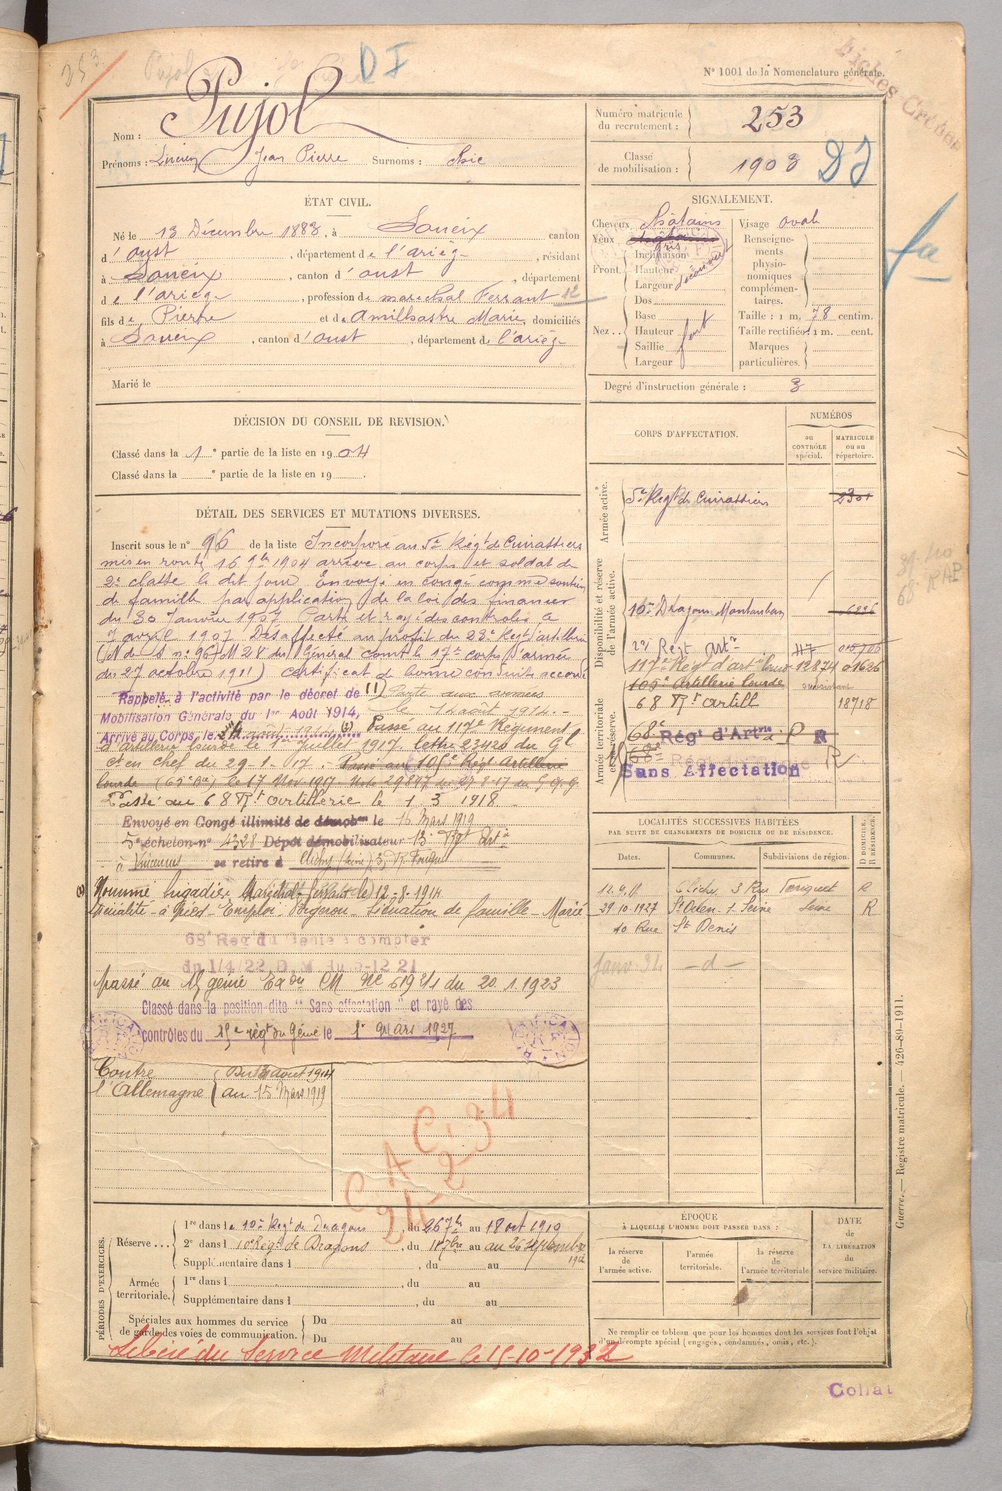 253
Pujol
DJ
N° 1001 de la Nomenclature générale.
Fiches Croisées
Nom : Pujol
Prénoms : Lucien Jean Pierre Surnoms : Chic
Numéro matricule du recrutement : 253
Classe de mobilisation : 1903
DJ
ÉTAT CIVIL.
Né le 13 Décembre 1883, à Soueix canton
d'oust, département de l'ariège, résidant
à Soueix, canton d'oust, département
de l'ariège, profession de maréchal Ferrant
fils de Pierre et de Amilhastre Marie, domiciliés
à Soueix, canton d'oust, département de l'ariège
Marié le
SIGNALEMENT.
Cheveux Chatains
Yeux gris
Front. Inclinaison
Hauteur
Largeur découvert
Nez Dos
Base
Hauteur fort
Saillie
Largeur
Visage oval
Renseignements physionomiques complémentaires.
Taille : 1 m. 78 centim.
Taille rectifiée : 1 m. cent.
Marques particulières.
Degré d'instruction générale : 3
DÉCISION DU CONSEIL DE REVISION.
Classé dans la 1e partie de la liste en 1904
Classé dans la e partie de la liste en 19
DÉTAIL DES SERVICES ET MUTATIONS DIVERSES.
Inscrit sous le n° 96 de la liste Incorporé au 5e Régt de Cuirassiers
mis en route 16 9bre 1904 arrivé au corps et soldat de
2e classe le dit jour. Envoyé en congé comme soutien
de famille par application de la loi des finances
du 30 Janvier 1907 Parti et rayé des controles le
avril 1907 Désaffecté au profit du 23e Régt d'artillerie
(N de S n° 967 M 28 du Général comt le 17e corps d'armée
du 27 octobre 1911) certificat de bonne conduite accordé
Rappelé à l'activité par le décret de Mobilisation Générale du 1er Août 1914,
Parti aux armées
le août 1914.
Arrivé au Corps, le août 1914 Passé au 117e Régiment
d'artillerie lourde le 1er Juillet 1917, lettre 23420 du Gl
Ct en chef du 29-1-17. Passé au 105e Régt Artillerie
lourde
Passé au 68 Rt artillerie le 1 3 1918
Envoyé en Congé illimité de démobon le 16 Mars 1919
5e échelon n° 4328 Dépôt démobilisateur 13e Rgt Art.
à Vincennes se retire à Clichy (Seine) 3, R.
Nommé brigadier Maréchal ferrant le 12-8-1914
Spécialité - à Pied - Emploi - Situation de famille - Marié
68e Régt du Génie à compter
du 1/4/22 D. M. du 12 21
passé au 15 génie Exon CM N° 51941 du 20.1.1923
Classé dans la position dite "Sans affectation" et rayé des
contrôles du 15e régt du Génie le 1er Mars 1927
Contre l'Allemagne
Du août 1914
au 15 Mars 1919
CORPS D'AFFECTATION.
NUMÉROS
au contrôle spécial.
matricule ou au répertoire.
Armée active.
5e Régt de Cuirassiers 2301
Disponibilité et réserve de l'armée active.
10e Dragons Montauban
23e Régt Artie
117e Régt d'art lourde 12874
105e Artillerie lourde
68 Rt artill 18718
Armée territoriale et sa réserve.
68e Régt d'Artrie à P
Sans Affectation
LOCALITÉS SUCCESSIVES HABITÉES
PAR SUITE DE CHANGEMENTS DE DOMICILE OU DE RÉSIDENCE.
Dates. Communes. Subdivisions de région. D. DOMICILE. R. RÉSIDENCE.
Clichy, 3 Rue R
29 10-1927 St Ouen Seine R
40 Rue St Denis
Janv. 34 -d-
C. 34
PÉRIODES D'EXERCICES.
Réserve ...
1re dans le 10e Régt de Dragons, du 26 7bre au 18 oct 1910
2e dans l 10 Régt de Dragons, du 1er 7bre au 26 septembre 1912
Supplémentaire dans l , du au
Armée territoriale.
1re dans l , du au
Supplémentaire dans l , du au
Spéciales aux hommes du service de garde des voies de communication.
Du au
Du au
ÉPOQUE
À LAQUELLE L'HOMME DOIT PASSER DANS :
la réserve de l'armée active.
l'armée territoriale.
la réserve de l'armée territoriale
DATE DE LA LIBÉRATION du service militaire.
Ne remplir ce tableau que pour les hommes dont les services font l'objet d'un décompte spécial (engagés, condamnés, omis, etc.).
Libéré du Service Militaire le 15-10-1932
Guerre. — Registre matricule. — 426-89-1911.
Collat